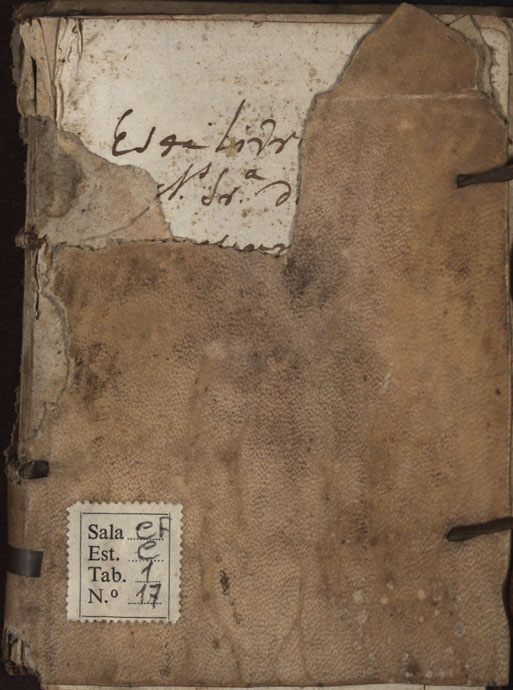 Este Livr
N. Sr.ª d
Sala CF
Est. C
Tab. 1
N.º 17